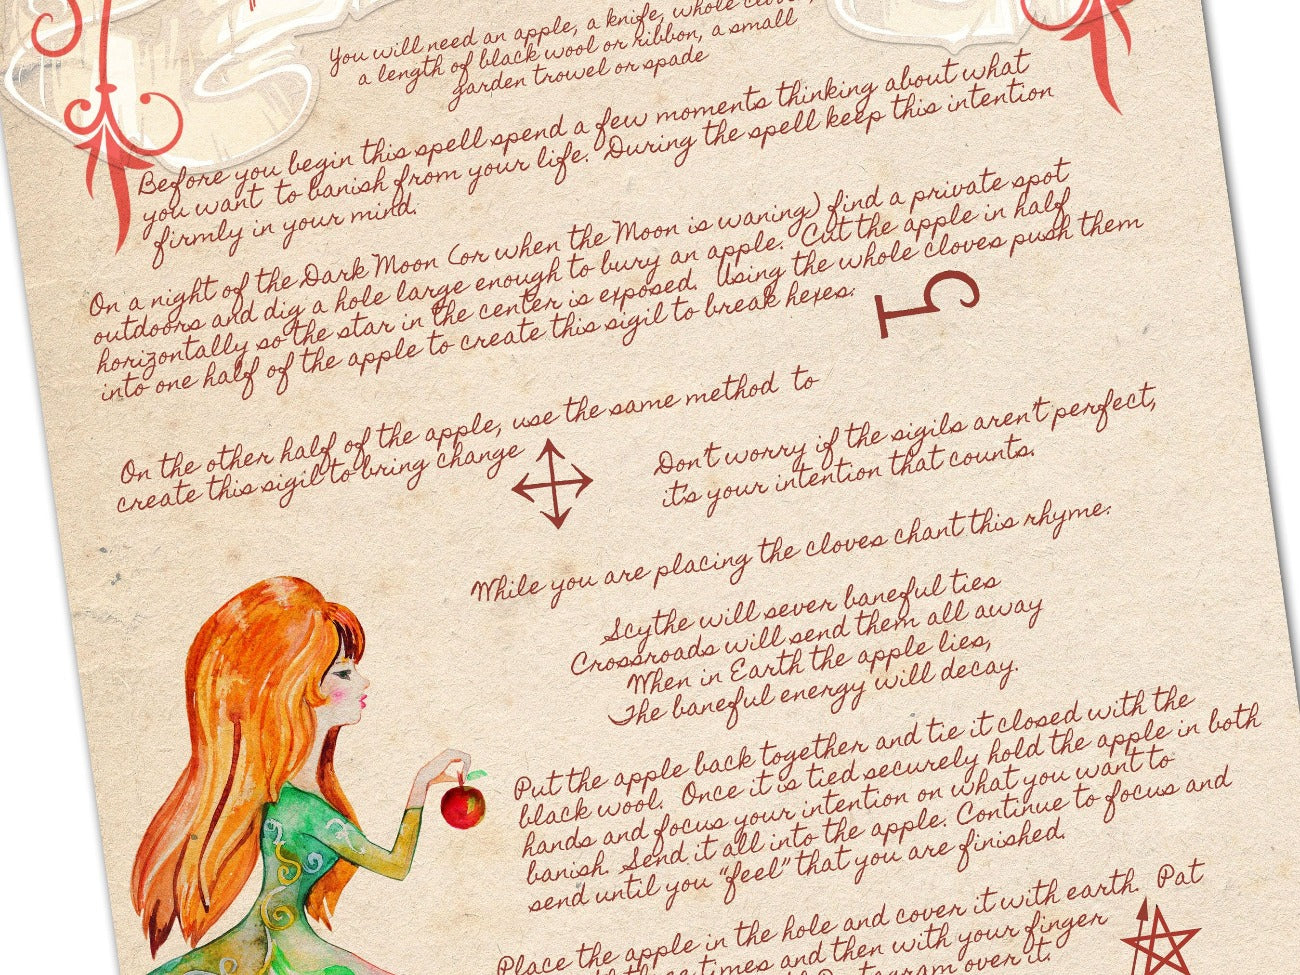 You will need an apple, a knife, whole cloves,
a length of black wool or ribbon, a small
garden trowel or spade
Before you begin this spell spend a few moments thinking about what
you want to banish from your life. During the spell keep this intention
firmly in your mind.
On a night of the Dark Moon (or when the Moon is waning) find a private spot
outdoors and dig a hole large enough to bury an apple. Cut the apple in half
horizontally so the star in the center is exposed. Using the whole cloves push them
into one half of the apple to create this sigil to break hexes.
On the other half of the apple, use the same method to
create this sigil to bring change
Don't worry if the sigils aren't perfect,
it's your intention that counts.
While you are placing the cloves chant this rhyme.
Scythe will sever baneful ties
Crossroads will send them all away
When in Earth the apple lies,
The baneful energy will decay.
Put the apple back together and tie it closed with the
black wool. Once it is tied securely hold the apple in both
hands and focus your intention on what you want to
banish. Send it all into the apple. Continue to focus and
send until you "feel" that you are finished.
Place the apple in the hole and cover it with earth. Pat
times and then with your finger
over it.